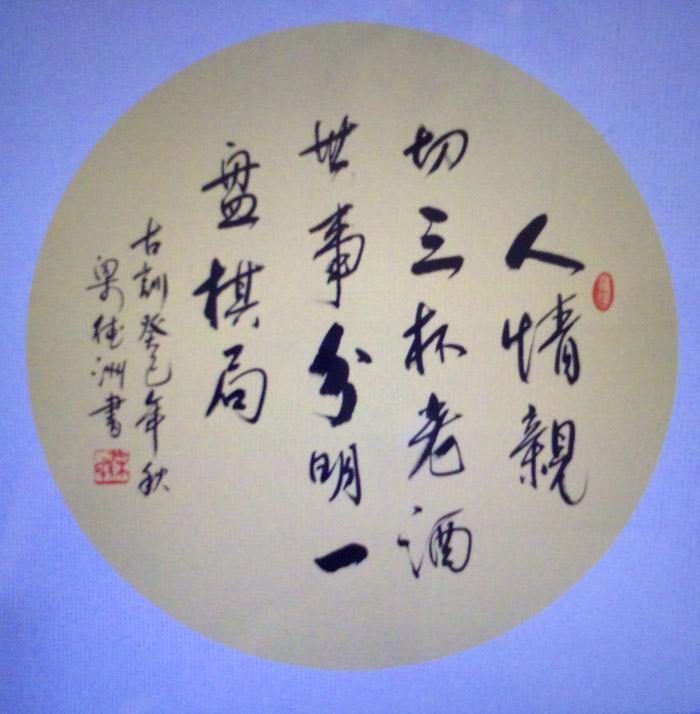 人情親
切三杯老酒
世事分明一
盤棋局
古訓癸巳年秋
梁德洲書